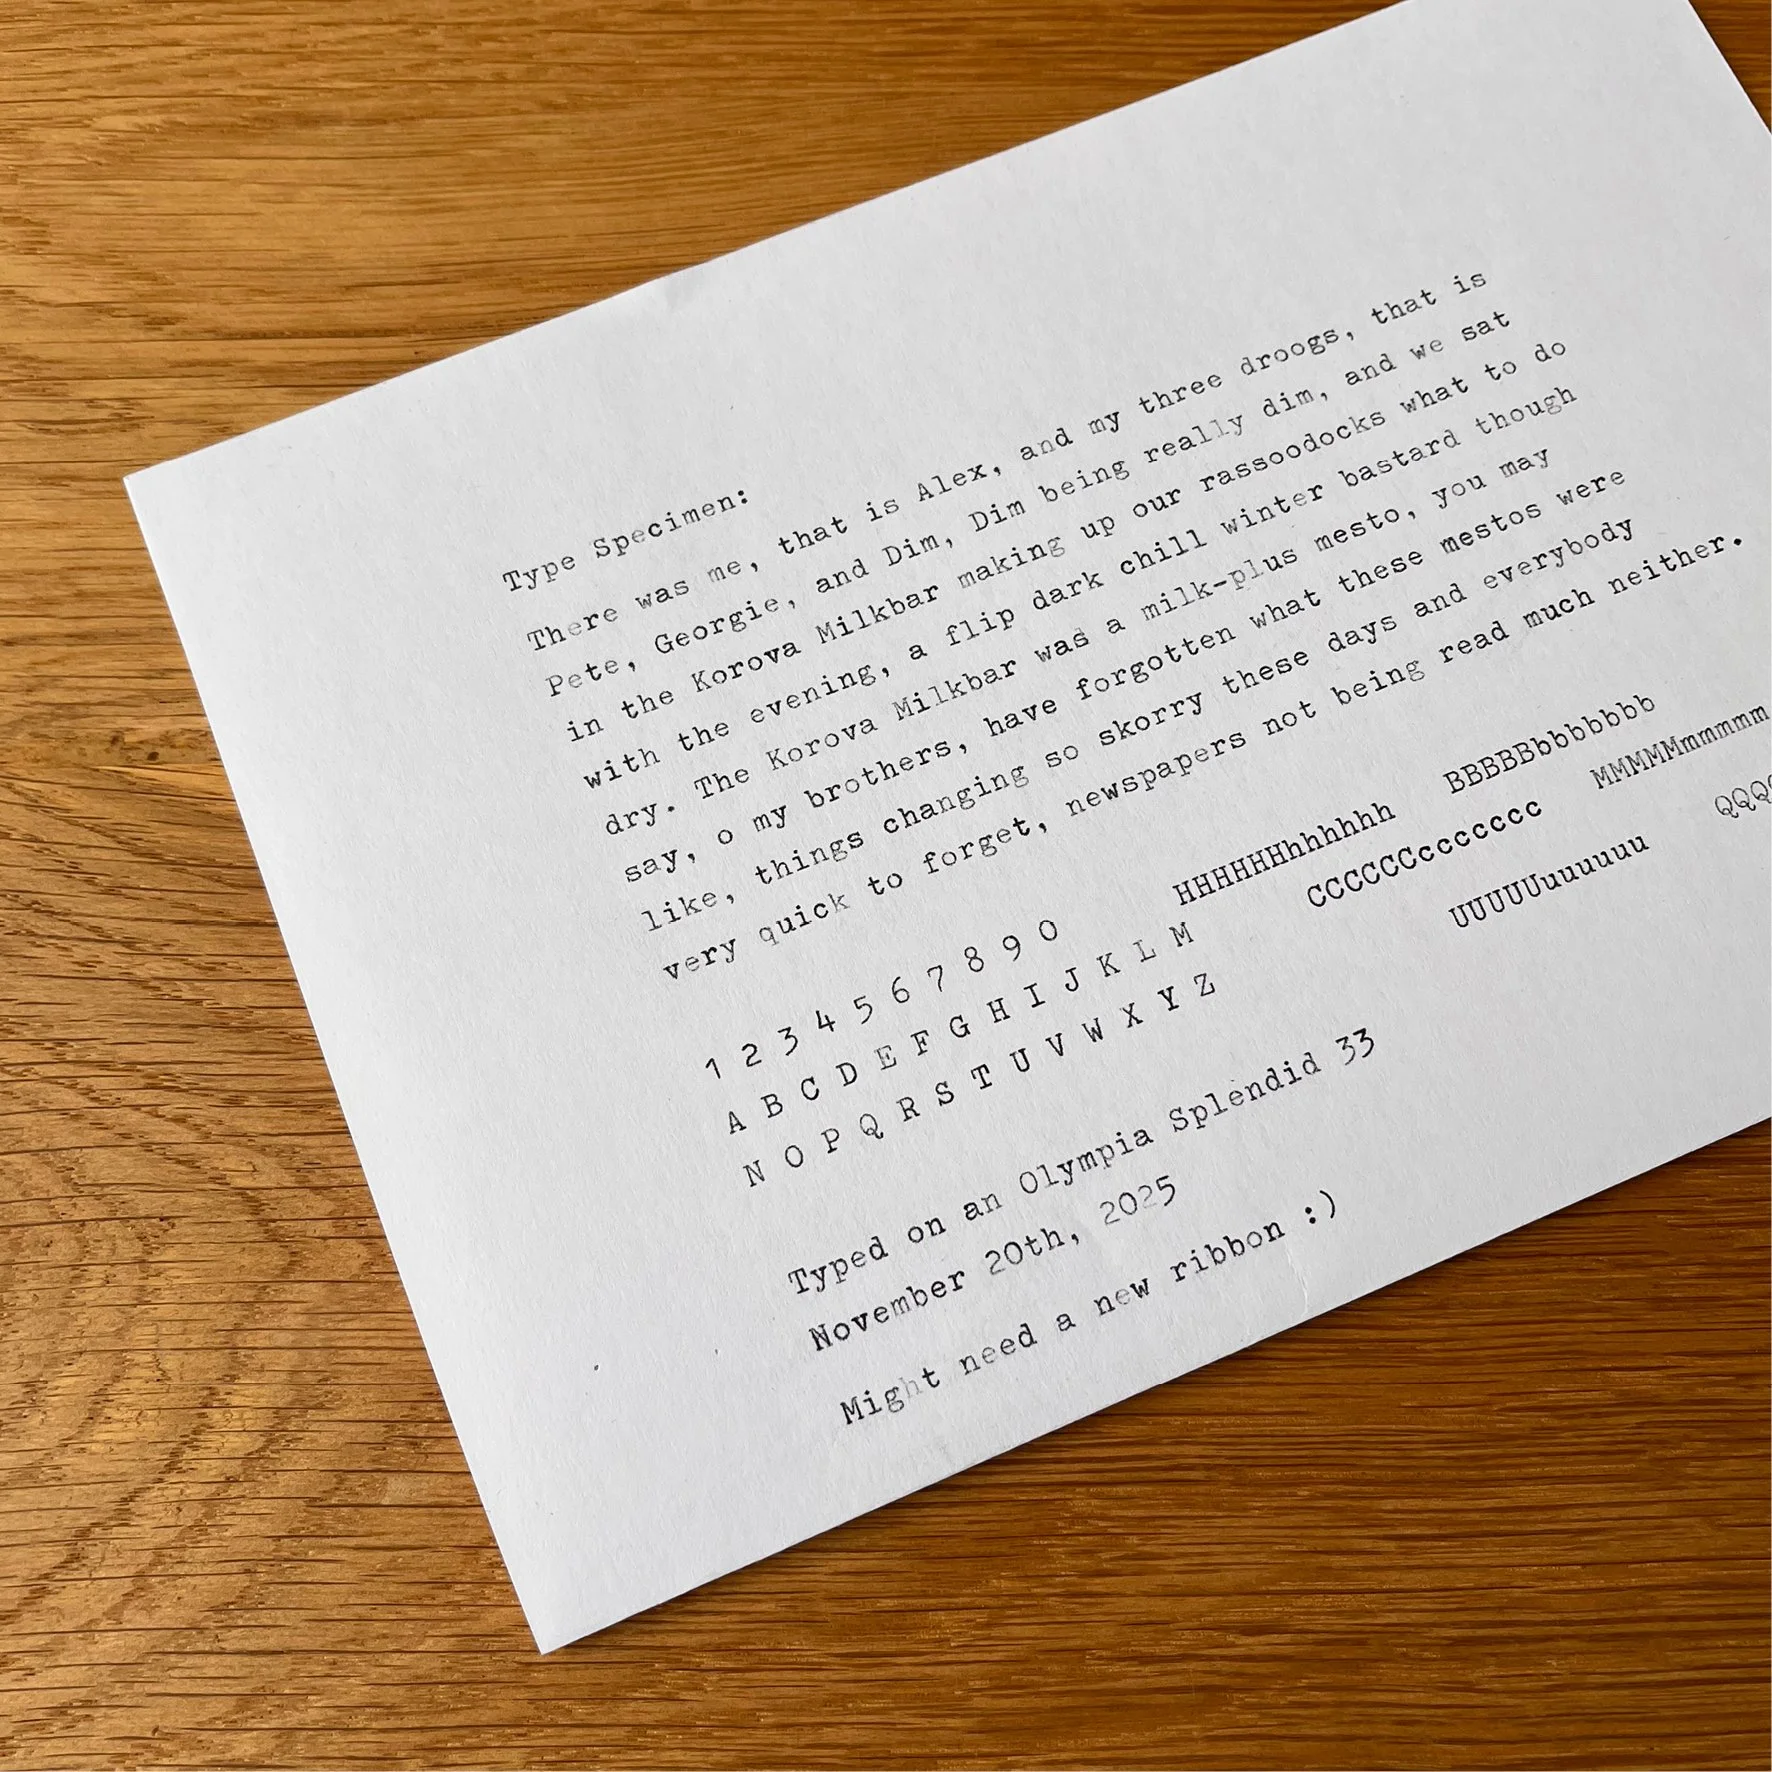 Type Specimen:
There was me, that is Alex, and my three droogs, that is
Pete, Georgie, and Dim, Dim being really dim, and we sat
in the Korova Milkbar making up our rassoodocks what to do
with the evening, a flip dark chill winter bastard though
dry. The Korova Milkbar was a milk-plus mesto, you may
say, o my brothers, have forgotten what these mestos were
like, things changing so skorry these days and everybody
very quick to forget, newspapers not being read much neither.
1 2 3 4 5 6 7 8 9 0 HHHHHHhhhhhhh BBBBBbbbbbbb
A B C D E F G H I J K L M CCCCCCccccccc MMMMMmmmmmm
N O P Q R S T U V W X Y Z UUUUUuuuuuuu QQQ
Typed on an Olympia Splendid 33
November 20th, 2025
Might need a new ribbon :)